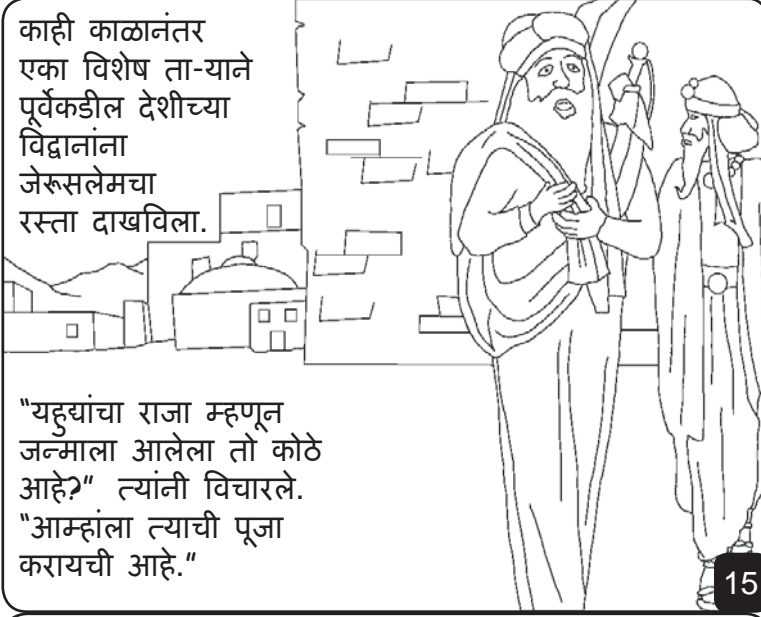 काही काळानंतर
एका विशेष ता-याने
पूर्वेकडील देशीच्या
विद्वानांना
जेरूसलेमचा
रस्ता दाखविला.
“यहुद्यांचा राजा म्हणून
जन्माला आलेला तो कोठे
आहे?”  त्यांनी विचारले.
“आम्हांला त्याची पूजा
करायची आहे.”
15